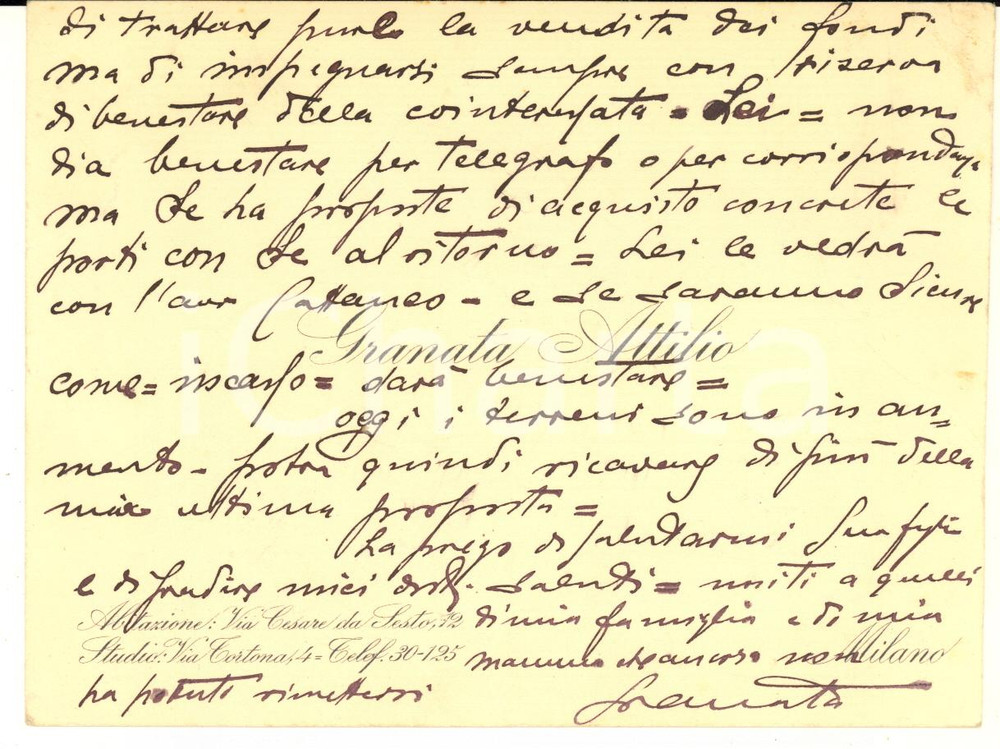 di trattare pure la vendita dei fondi
ma di impegnarsi sempre con riserva
di benestare della cointeressata = Lei = non
dia benestare per telegrafo o per corrispondenza
ma se ha proposte di acquisto concrete le
porti con se al ritorno = Lei le vedrà
con l'avv Cattaneo - e se saranno sicure
Granata Attilio
come = incasso = darà benestare =
oggi i terreni sono in au=
mento - potrà quindi ricavare di più della
mia ultima proposta =
La prego di salutarmi Sua
e di gradire miei saluti = uniti a quelli
Abitazione: Via Cesare da Sesto, 12 di mia famiglia e di mia
Studio: Via Tortona, 4 = Telef. 30-125 mamma che ancora non Milano
ha potuto rimettersi Granata